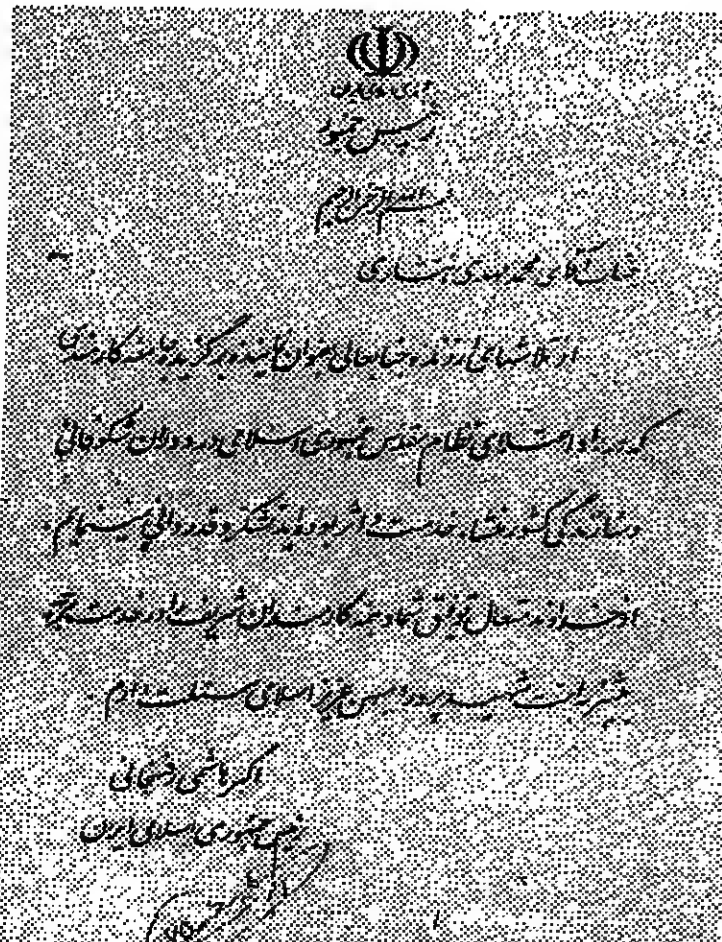 جمهوری اسلامی ایران
رئیس جمهور
بسم الله الرحمن الرحیم
جناب آقای محمد مهدی
از تلاشهای ارزنده جنابعالی بعنوان نماینده برگزیده جامعه کارمندی
که در راه اعتلای نظام مقدس جمهوری اسلامی در دوران شکوفائی
و سازندگی کشور منشاء خدمت و اثر بوده‌اید تشکر و قدردانی مینمایم.
از خداوند متعال توفیق شما و همه کارمندان شریف را در خدمت هرچه
بیشتر به امت شهیدپرور و میهن عزیز اسلامی مسئلت دارم.
اکبر هاشمی رفسنجانی
رئیس جمهوری اسلامی ایران